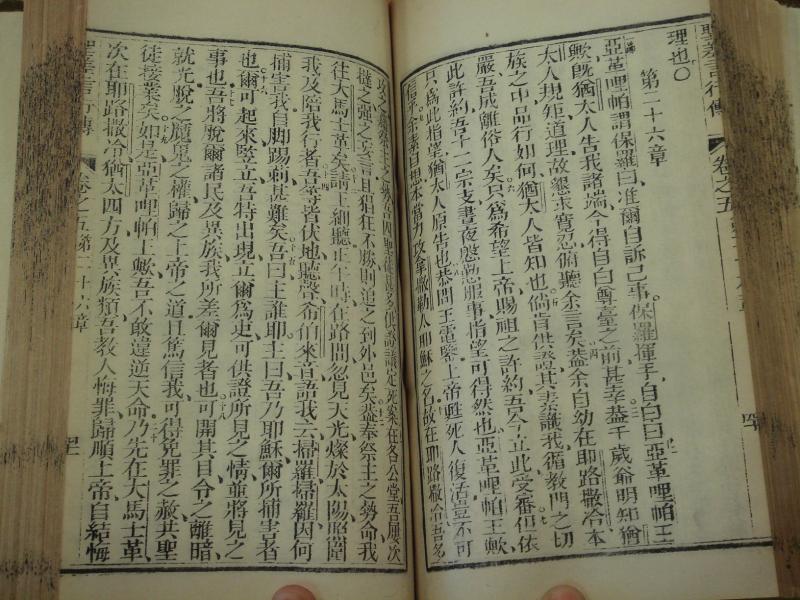 聖差言行傳 卷之五
理也〇
第二十六章
亞革哩帕謂保羅曰准爾自訴己事保羅揮手自白曰亞革哩帕王
歟旣猶太人告我諸端今得自白尊臺之前甚幸益千歲爺明知猶
太人規矩道理故懇求寬忍俯聽余言矣蓋余自幼在耶路撒冷本
族之中品行如何猶太人皆知也倘肯供證其素識我循教門之切
嚴吾成離俗人矣只爲希望上帝賜祖之許約吾今立此受審但依
此許約吾十二宗支晝夜慇懃服事指望可得然也亞革哩帕王歟
只爲此指望猶太人原告也恭問王電鑒上帝甦死人復活豈不可
信乎余素自想本當力攻拿撒勒人耶穌之名故在耶路撒冷吾名
往大馬士革矣請王細聽正午時在路間忽見天光燦於太陽照圍
我及陪我行者吾等皆伏地聽聲希伯來音語我云掃羅掃羅因何
捕害我自脚踢刺甚難矣吾曰主誰耶主曰吾乃耶穌爾所捕害者
也爾可起來竪立吾特出現立爾爲吏可供證所見之情並將見之
事也吾將脫爾諸民及異族我所差爾見者也可開其目令之離暗
就光脫之魔鬼之權歸之上帝之道且篤信我可得免罪之赦共聖
徒接業矣如是亞革哩帕王歟吾不敢違逆天命乃先在大馬士革
次在耶路撒冷猶太四方及異族類吾教人悔罪歸順上帝自結悔
聖差言行傳 卷之五第二十六章